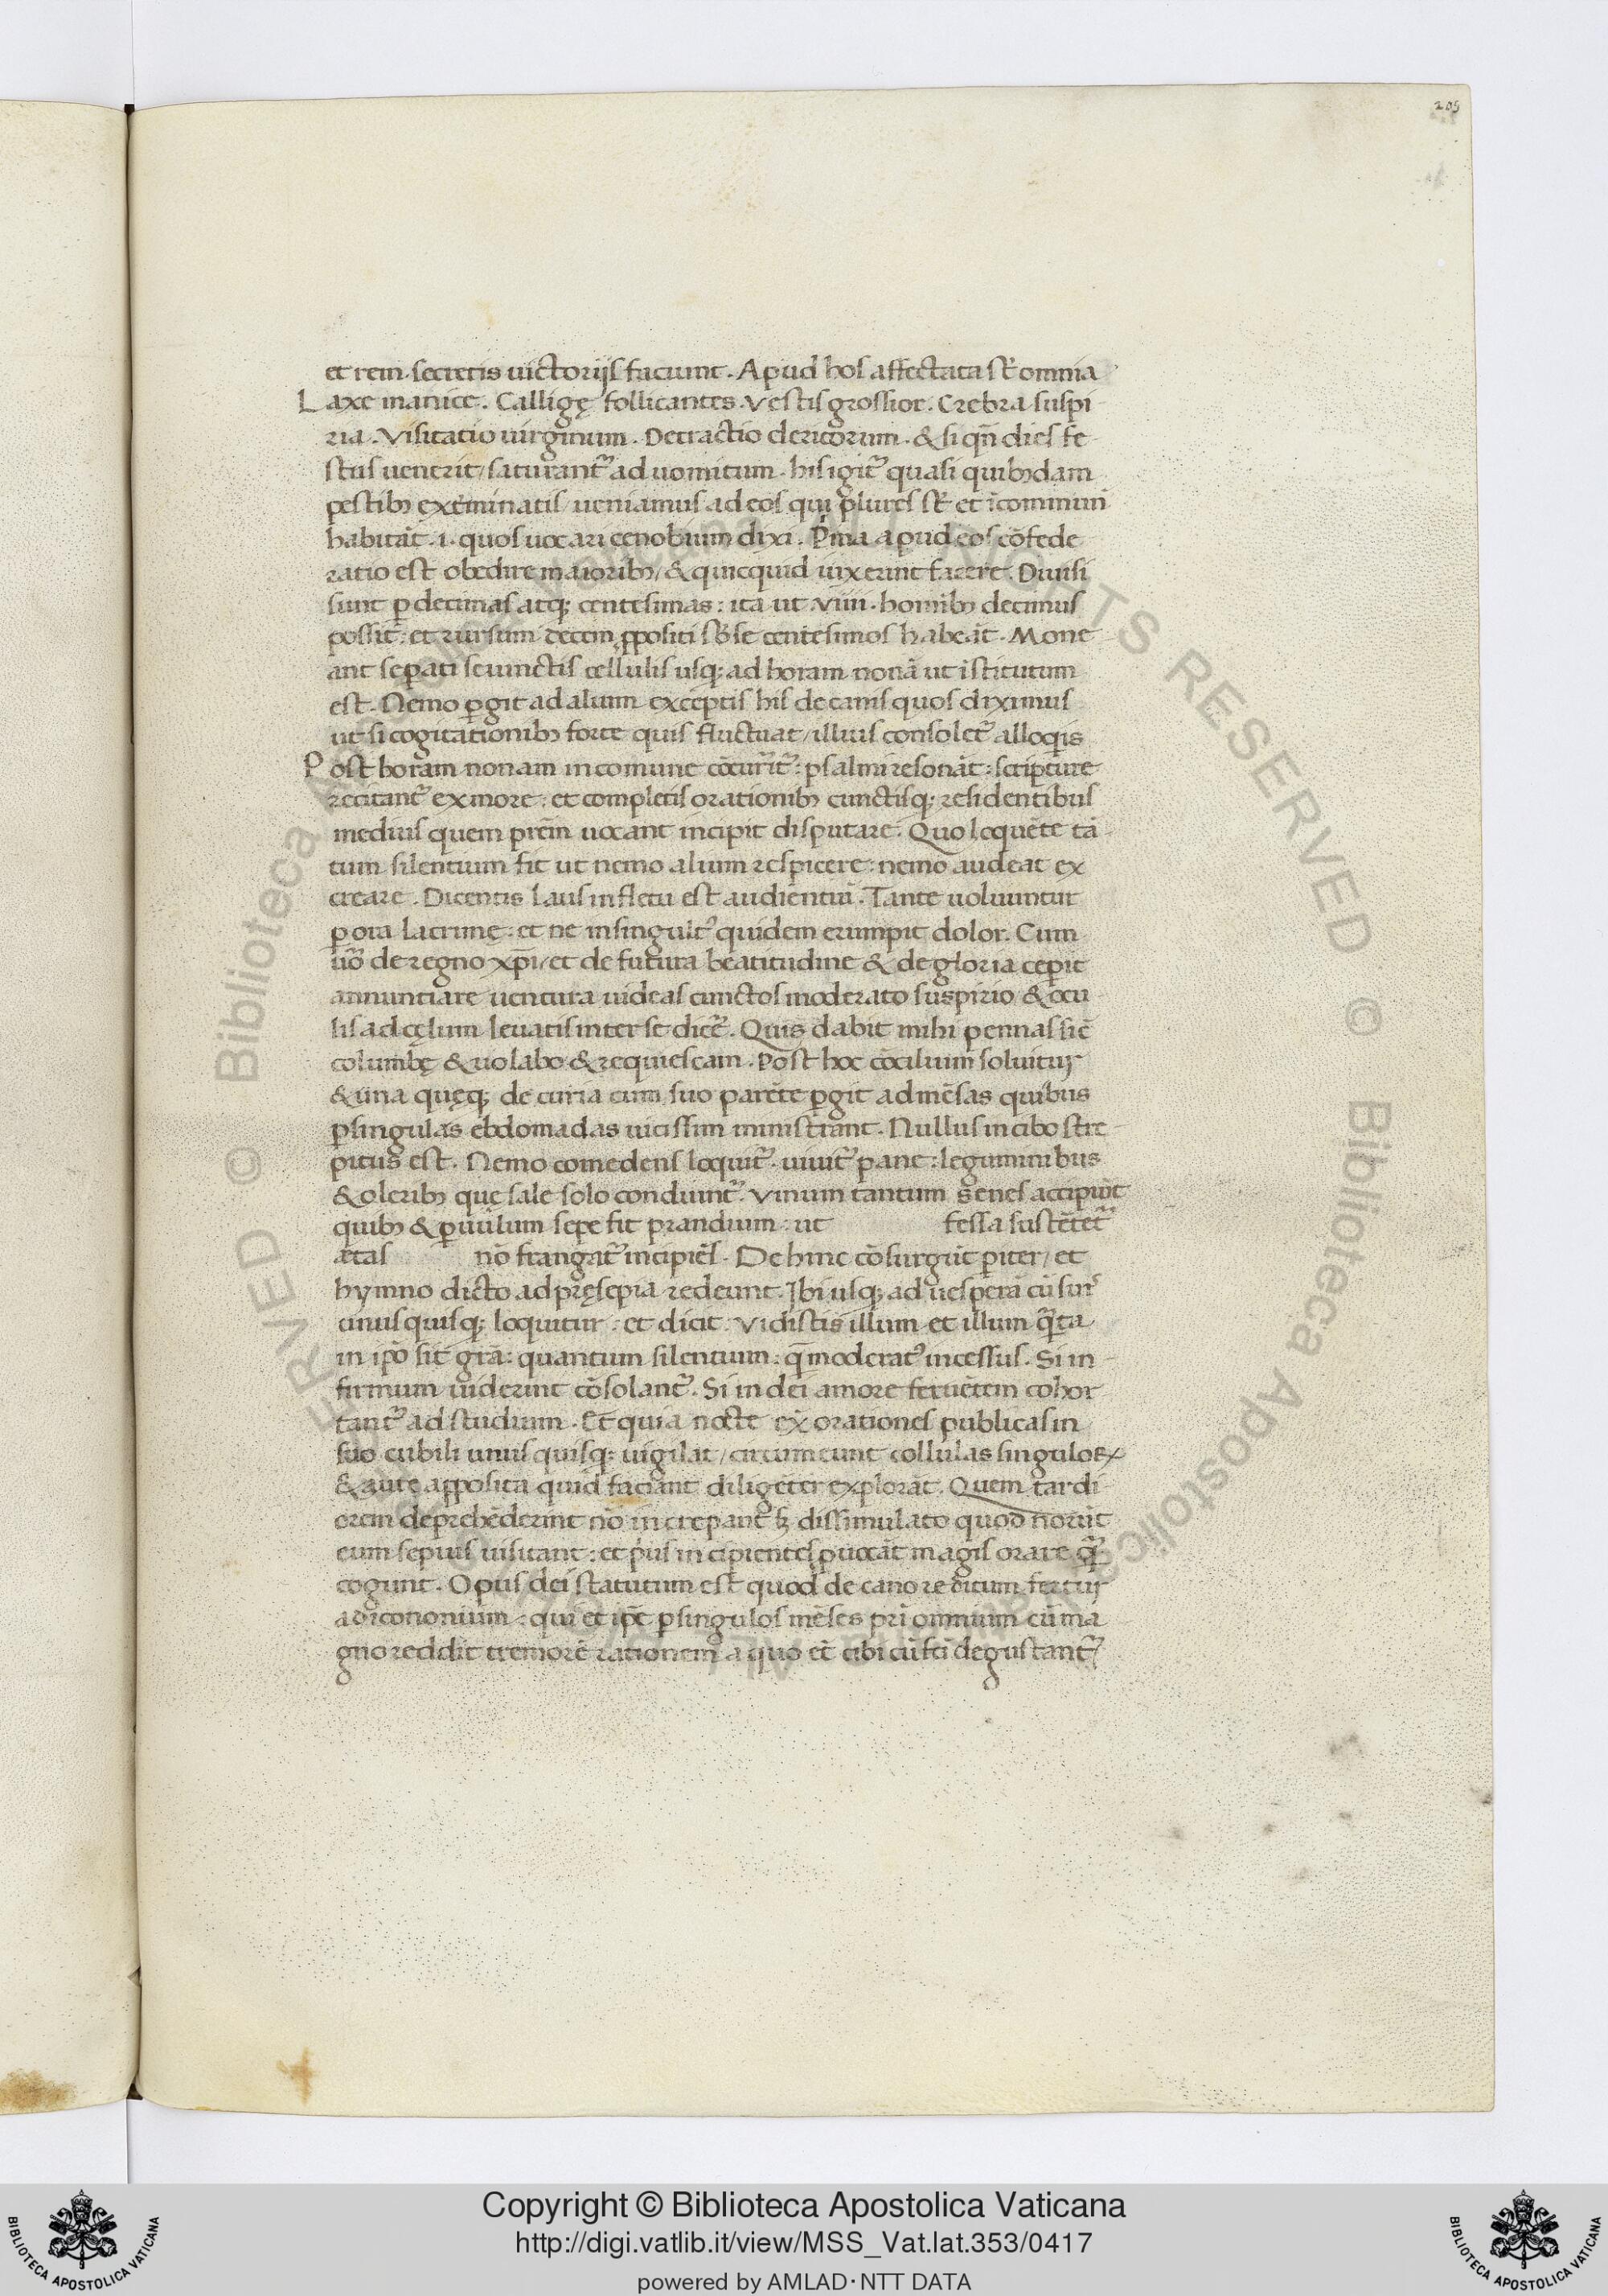 205
et rem secretis uictorijs faciunt. Apud hos affectata st̅ omnia
Laxe manice. Calligę follicantes. Vestis grossior. Crebra suspi
ria. Visitatio uirginum. Detractio clericorum. & si qn̅ dies fe-
stus uenerit/ saturant᷑ ad uomitum. his igit᷑ quasi quibꝫdam
pestibꝫ exterminatis/ ueniamus ad eos qui plures st̅ et i̅ comuni
habitāt .i. quos uocari cenobium dixi. Pͥma apud eos cōfede
ratio est obedire maioribꝫ/ & quicquid iuxerint facere. Diuisi
sunt ꝑ decimas atqꝫ centesimas: ita ut .viiii. homībꝫ decimus
possit: et rursum decem p̱positi sb̅ se centesimos habeāt. Mone
ant seꝑati seiunctis cellulis usqꝫ ad horam nonā ut īstitutum
est. Nemo ꝑgit ad alium exceptis his decanis quos diximus
ut si cogitationibꝫ forte quis fluctuat/ illius consolet᷑ alloqͥis
Post horam nonam in comune cōcurrit᷑: psalmi resonāt: scripture
recitant᷑ ex more: et completis orationibꝫ cunctisqꝫ residentibus
medius quem pr̄em uocant incipit disputare. Quo loquēte tā
tum silentium fit ut nemo alium respicere: nemo audeat ex
creare. Dicentis laus in fletu est audientiū. Tante uoluuntur
ꝑ ora lacrimę: et ne in singult᷒ quidem erumpit dolor. Cum
uo̅ de regno xp̅i/ et de futura beatitudine & de gloria ceperit
annuntiare uentura uideas cunctos moderato suspirio/ & ocu
lis ad cęlum leuatis inter se dice᷑. Quis dabit mihi pennas sic̅
columbę & uolabo & requiescam. Post hoc cōciliuim soluitur
& una quęqꝫ de curia cum suo parēte ꝑgit ad mēsas quibus
ꝑ singulas ebdomadas uicissim ministrant. Nullus in cibo stre-
pitus est. Nemo comedens loquit᷑. uiuit᷑ pane: leguminibus
& oleribꝫ quę sale solo condiunt᷑. Vinum tantum senes accipiūt
quibꝫ & ꝑuulum sepe fit prandium: ut fessa sustētet᷑
ętas nō frangat᷑ incipiēs. Dehinc cōsurgūt pariter/ et
hymno dicto ad pręsepia redeunt. Ibi usqꝫ ad uesperā cū suis
unusquisqꝫ loquitur: et dicit: Vidistis illum et illum qͣ̄ta
in ip̄o sit gr̄a: quantum silentium: qͣ̄ moderat᷒ incessus. Si in-
firmum uiderint cōsolant᷑. Si in dei amore feruētem cohor
tant᷑ ad studium. Et quia nocte ex̄ orationes publicas in
suo cubili unusquisqꝫ uigilat/ circumeunt collulas singuloꝝ
& aure apposita quid faciant diligēter explorāt. Quem tardi-
orem deprehēderint nō increpant sꝫ dissimulato quod norūt
eum sepius uisitant: et pͥus incipientes puocāt magis orare qͣ̄
cogunt. Opus dei statutum est quod decano reditum fertur
ad iconomum: qui et ip̄e ꝑ singulos mēses pr̄i omnium cū ma
gno reddit tremore rationem a quo et̄ cibi cū fc̄i degustant᷑
© Biblioteca Apostolica Vaticana ALL RIGHTS RESERVED © Biblioteca Apostolica Vaticana ALL RIGHTS RESERVED
Copyright © Biblioteca Apostolica Vaticana
http://digi.vatlib.it/view/MSS_Vat.lat.353/0417
powered by AMLAD·NTT DATA
BIBLIOTECA APOSTOLICA VATICANA
BIBLIOTECA APOSTOLICA VATICANA